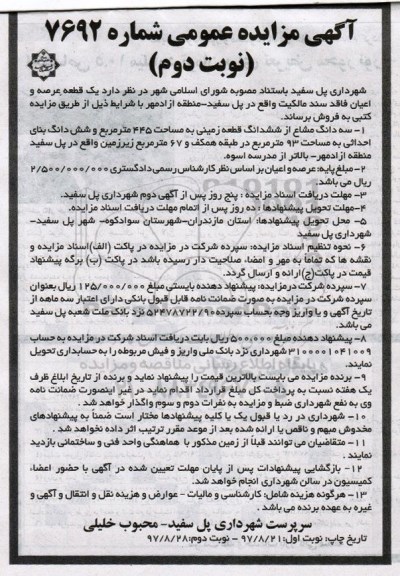 آگهی مزایده عمومی شماره ۷۶۹۲
(نوبت دوم)
شهرداری پل سفید باستناد مصوبه شورای اسلامی شهر در نظر دارد یک قطعه عرصه و
اعیان فاقد سند مالکیت واقع در پل سفید-منطقه ازادمهر با شرایط ذیل از طریق مزایده
کتبی به فروش برساند.
۱- سه دانگ مشاع از ششدانگ قطعه زمینی به مساحت ۴۴۵ مترمربع و شش دانگ بنای
احداثی به مساحت ۹۳ مترمربع در طبقه همکف و ۶۷ مترمربع زیرزمین واقع در پل سفید
منطقه ازادمهر- بالاتر از مدرسه اسوه.
۲- مبلغ پایه: عرصه و اعیان بر اساس نظر کارشناس رسمی دادگستری ۲/۵۰۰/۰۰۰/۰۰۰
ریال می باشد.
۳- مهلت دریافت اسناد مزایده: پنج روز پس از آگهی دوم شهرداری پل سفید.
۴- مهلت تحویل پیشنهادها: ده روز پس از اتمام مهلت دریافت اسناد مزایده.
۵- محل تحویل پیشنهادها: استان مازندران-شهرستان سوادکوه- شهر پل سفید-
شهرداری پل سفید
۶- نحوه تنظیم اسناد مزایده: سپرده شرکت در مزایده در پاکت (الف)اسناد مزایده و
نقشه ها که تماماً به مهر و امضاء صلاحیت دار رسیده باشد در پاکت (ب) برگه پیشنهاد
قیمت در پاکت(ج)ارائه و ارسال گردد.
۷- سپرده شرکت درمزایده: پیشنهاد دهنده بایستی مبلغ ۱۲۵/۰۰۰/۰۰۰ ریال بعنوان
سپرده شرکت در مزایده به صورت ضمانت نامه قابل قبول بانکی دارای اعتبار سه ماهه از
تاریخ آگهی و یا واریز وجه بحساب سپرده ۵۲۴۷۸۷۲۲/۹۰ نزد بانک ملت شعبه پل سفید
می باشد.
۸- پیشنهاد دهنده مبلغ ۵۰۰,۰۰۰ ریال بابت دریافت اسناد شرکت در مزایده به حساب
۳۱۰۰۰۰۱۰۴۱۰۰۹ شهرداری نزد بانک ملی واریز و فیش مربوطه را به حسابداری تحویل
نمایند.
۹- برنده مزایده می بایست بالاترین قیمت را پیشنهاد نماید و برنده از تاریخ ابلاغ ظرف
یک هفته نسبت به پرداخت کل مبلغ قرارداد اقدام نماید در غیر اینصورت ضمانت نامه
وی به نفع شهرداری ضبط و مزایده به نفرات دوم و سوم واگذار خواهد شد.
۱۰- شهرداری در رد یا قبول یک یا کلیه پیشنهادها مختار است ضمناً به پیشنهادهای
مخدوش مبهم و ناقص یا ارائه شده بعد از موعد مقرر ترتیب اثر داده نخواهد شد.
۱۱- متقاضیان می توانند قبلاً از زمین مذکور با هماهنگی واحد فنی و ساختمانی بازدید
نمایند.
۱۲- بازگشایی پیشنهادات پس از پایان مهلت تعیین شده در آگهی با حضور اعضاء
کمیسیون در سالن شهرداری انجام خواهد شد.
۱۳- هرگونه هزینه شامل: کارشناسی و مالیات - عوارض و هزینه نقل و انتقال و آگهی و
غیره به عهده برنده می باشد.
سرپرست شهرداری پل سفید- محبوب خلیلی
تاریخ چاپ: نوبت اول: ۹۷/۸/۲۱ - نوبت دوم: ۹۷/۸/۲۸